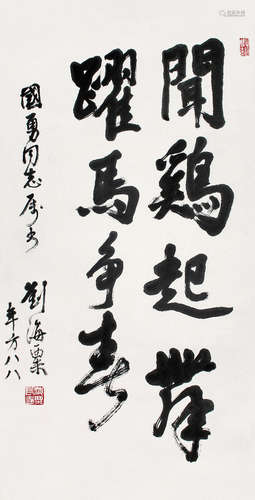 聞鷄起舞
躍馬争春
國勇同志属书
劉海粟
年方八八